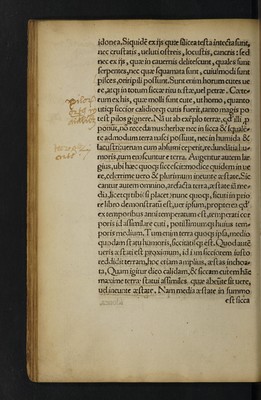 idonea. Siquidē ex ijs quæ silicea testa intecta sunt,
nec crustatis, ueluti ostreis, locustis, cancris: sed
nec ex ijs, quæ in cauernis delitescunt, quales sunt
serpentes, nec quæ squamata sunt, cuiusmodi sunt
pisces, oriri pili possunt. Sunt enim horum cutes ue
re, atq; in totum siccæ
rum ex his, quæ molli sunt cute, ut homo, quanto
utiq; siccior calidiorq; cutis fuerit, tanto magis po
test pilos gignere. Ni ut ab exēplo terræ,
non recedamus: herbæ nec in sicca & squalē
te admodum terra nasci possunt, nec in humida &
lacustri: uerum cum absumi cœperit, redundās hu
mor, tum enascuntur e terra. Augentur autem lar
gius, ubi hæc quoq; siccescit: modice quidem in ue
re, celerrime uero & plurimum ineunte æstate. Sic
cantur autem omnino, arefacta terra, æstate iā me
dia, licet
re libro demonstratū est, uer ipsum, propterea qd'
ex temporibus anni temperatum est, temperati cor
poris id assimilare cuti, potissimum q; huius tem
poris medium. Tum enim terra quoq; ipsa, medio
quodam statu humoris, siccitatis q; est. Quod autē
ueris æstati est proximum, id iam sicciorem iusto
reddidit terram, hoc etiam amplius, æstas inchoa
ta. Quam igitur dico calidam, & siccam cutem hāc
maxime terræ statui assimiles, quæ abeūte sit uere,
uel ineunte æstate. Nam media æstate in summo
est sicca